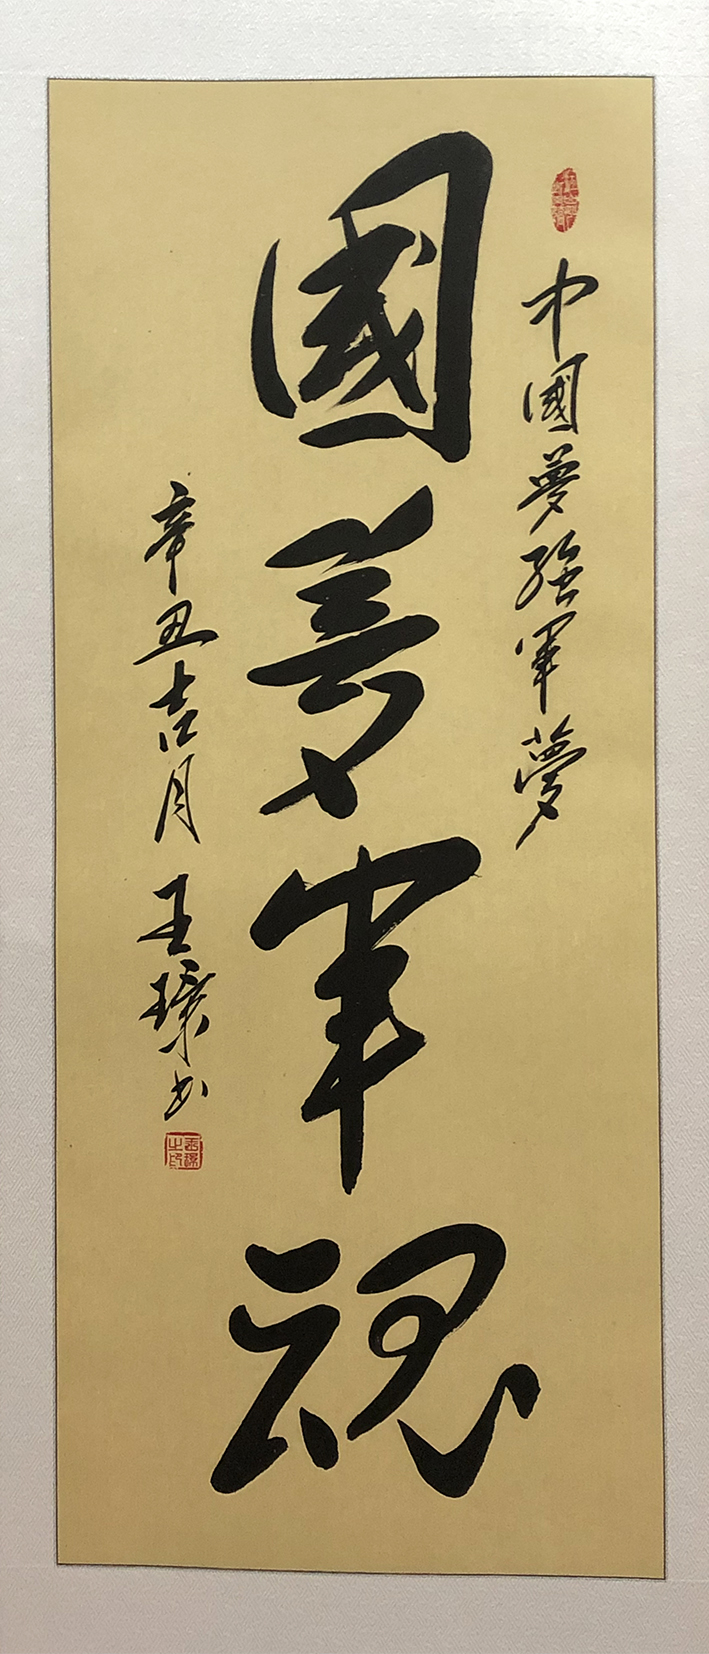 中國夢強軍夢
國夢軍魂
辛丑吉月王璞书